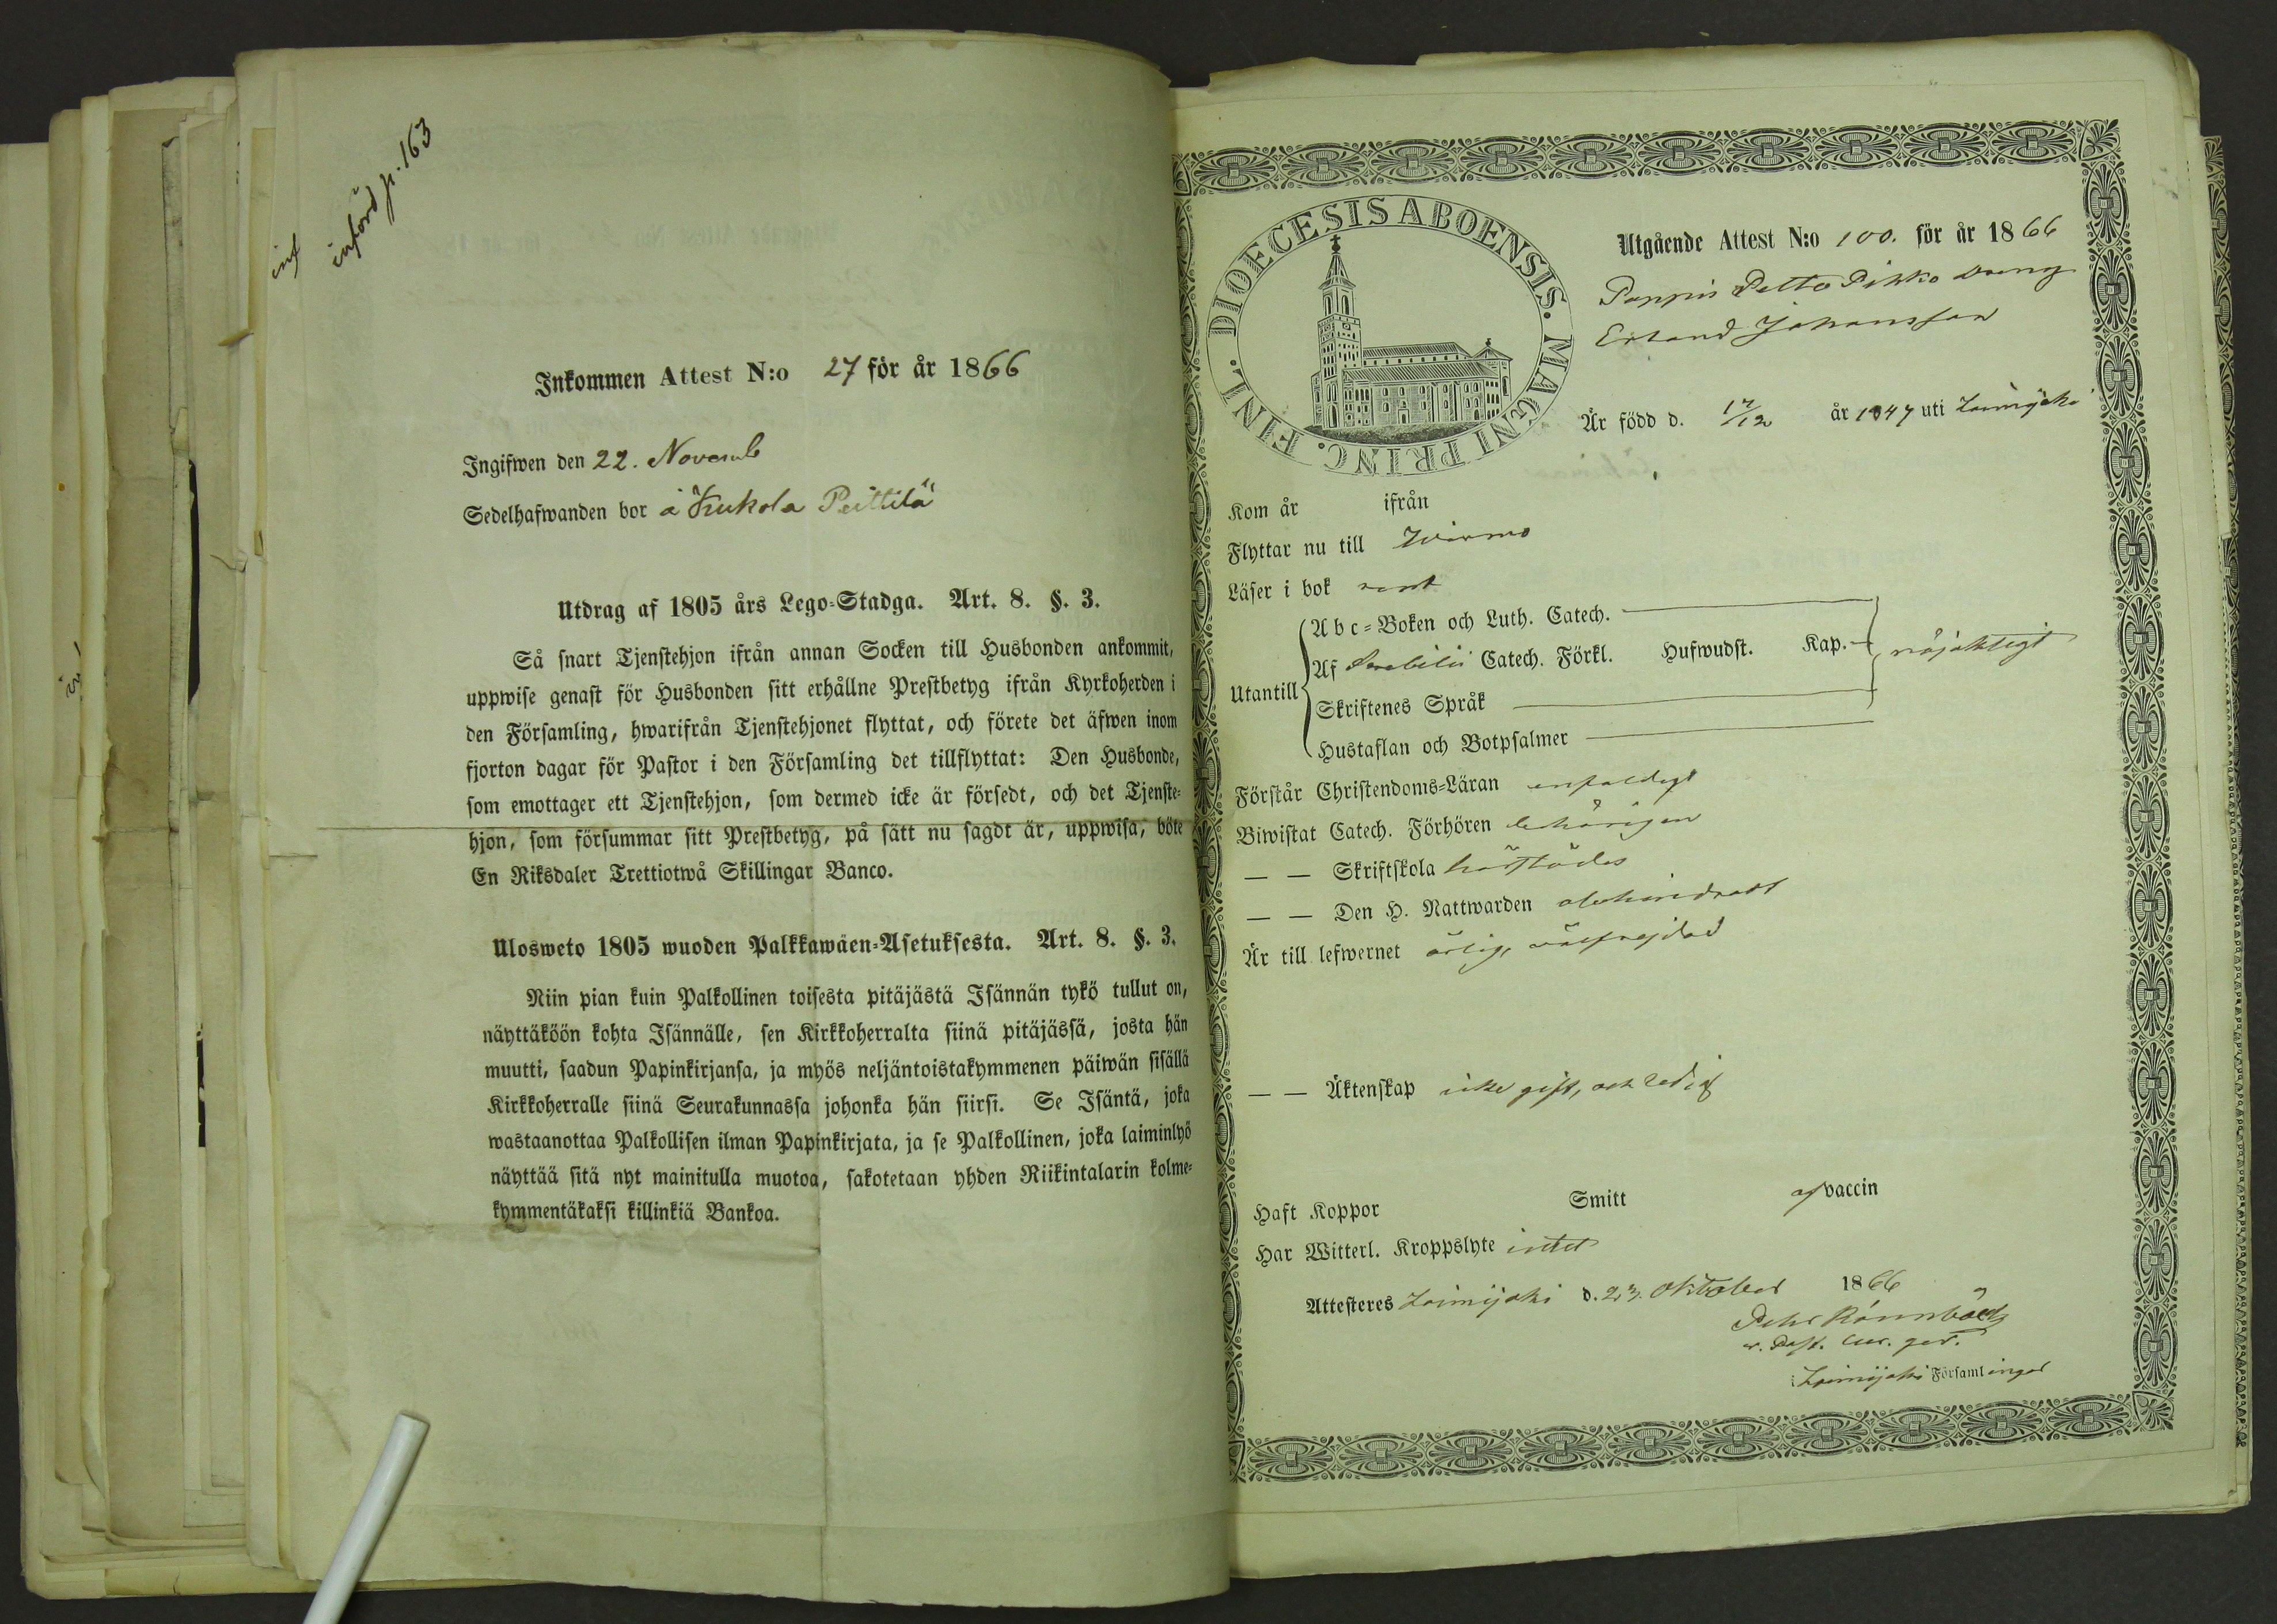 inf
införd p. 163
Inkommen Attest N:o 27 för år 1866
Ingifwen den 22. Novemb
Sedelhafwanden bor å Kukola Peittilä
Utdrag af 1805 års Lego-Stadga. Art. 8. §. 3.
Så snart Tjenstehjon ifrån annan Socken till Husbonden ankommit,
uppwise genast för Husbonden sitt erhållne Prestbetyg ifrån Kyrkoherden i
den Församling, hwarifrån Tjenstehjonet flyttat, och förete det äfwen inom
fjorton dagar för Pastor i den Församling det tillflyttat: Den Husbonde,
som emottager ett Tjenstehjon, som dermed icke är försedt, och det Tjenste-
hjon, som försummar sitt Prestbetyg, på sätt nu sagdt är, uppwisa, böte
En Riksdaler Trettiotwå Skillingar Banco.
Ulosweto 1805 wuoden Palkkawäen-Asetuksesta. Art. 8. §. 3.
Niin pian kuin Palkollinen toisesta pitäjästä Isännän tykö tullut on,
näyttäköön kohta Isännälle, sen Kirkkoherralta siinä pitäjässä, josta hän
muutti, saadun Papinkirjansa, ja myös neljäntoistakymmenen päiwän sisällä
Kirkkoherralle siinä Seurakunnassa johonka hän siirsi. Se Isäntä, joka
wastaanottaa Palkollisen ilman Papinkirjata, ja se Palkollinen, joka laiminlyö
näyttää sitä nyt mainitulla muotoa, sakotetaan yhden Riikintalarin kolme-
kymmentäkaksi killinkiä Bankoa.
DIOECESIS ABOENSIS. MAGNI PRINC. FINL.
Utgående Attest N:o 100. för år 1866
Pappis Pelto Pikko dreng
Erland Johansson
Är född d. 17/12 år 1847 uti Loimijoki
Kom år ifrån
Flyttar nu till Wirmo
Läser i bok rent
Utantill
Abc-Boken och Luth. Catech.
Af Svebilii Catech. Förkl. Hufwudst. Kap. nöjaktigt
Skriftenes Språk
Hustaflan och Botpsalmer
Förstår Christendoms-Läran enfaldigt
Biwistat Catech. Förhören behörigen
— — Skriftskola härstädes
— — Den H. Nattwarden obehindradt
Är till lefwernet ärlig, välfrejdad
— — Äktenskap icke gift, och ledig
Haft Koppor Smitt af vaccin
Har Witterl. Kroppslyte intet
Attesteres Loimijoki d. 23. Oktober 1866
Pehr Rönnbäck
v. Past. Cur. ger.
i Loimijoki Församlingar